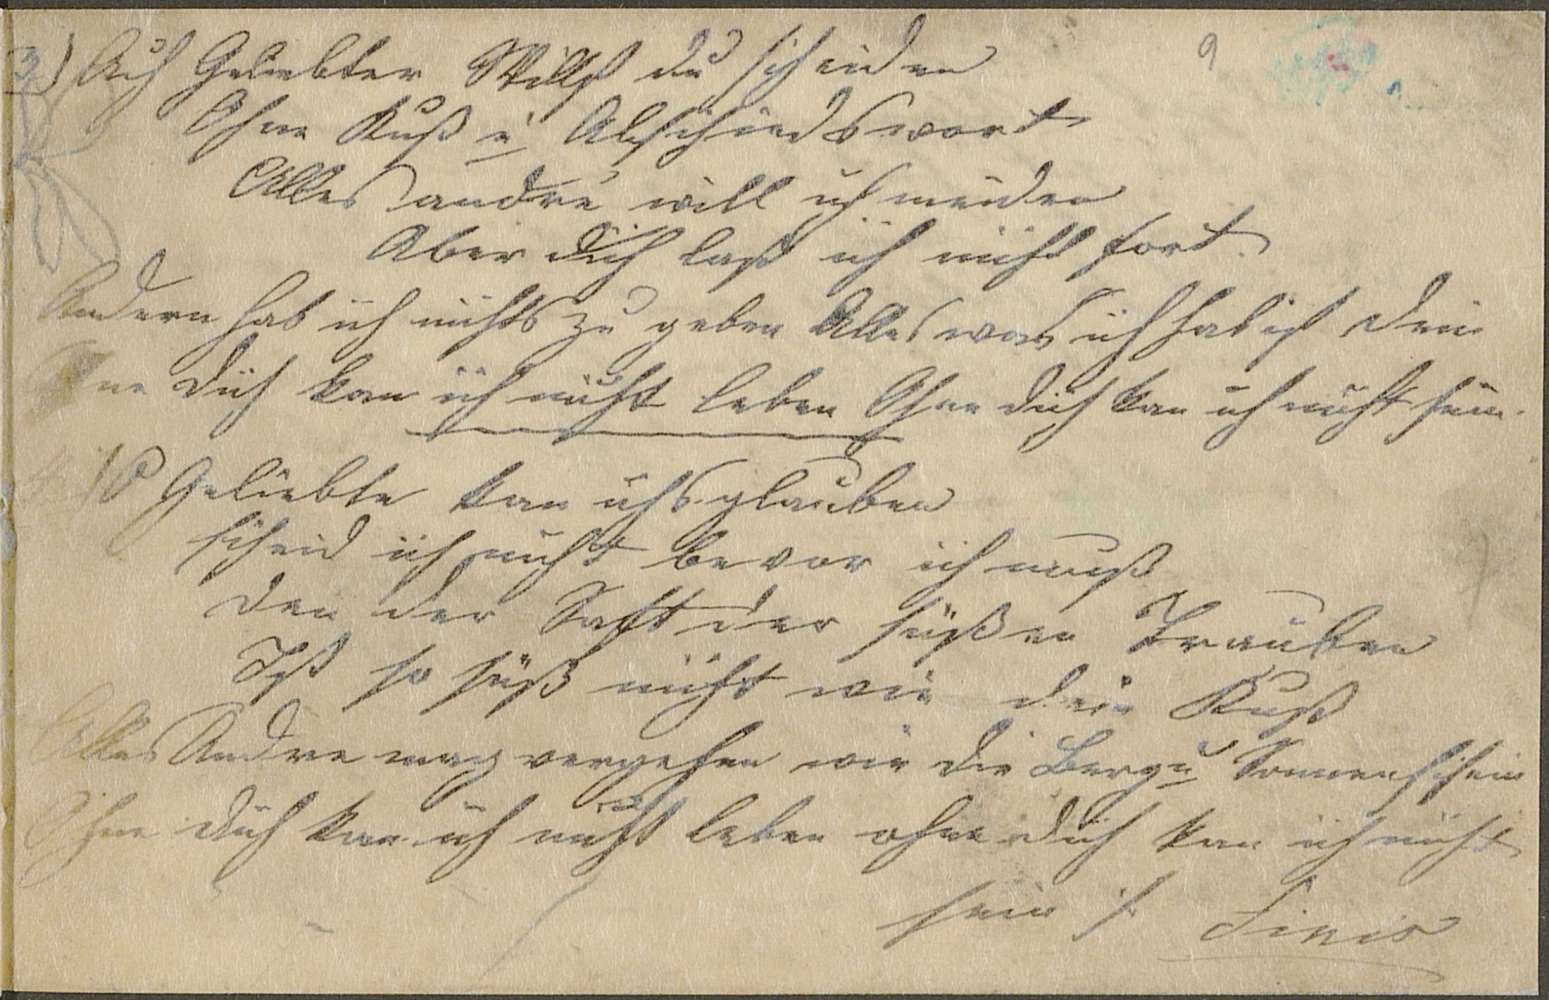 9
3) Ach Geliebter Willst du scheiden
Ohne Kuß u Abschiedswort
Alles andre will ich meiden
Aber dich laß ich nicht fort.
Andern hab ich nichts zu geben Alles was ich hab ist dein
Ohne dich kan ich nicht leben Ohne dich kan ich nicht sein.
4.) O Geliebte kan ichs glauben
scheid ich nicht bevor ich muß
den der Saft der süßen Trauben
Ist so süß nicht wie dein Kuß
Alles Andre mag vergehen wie die Berg u Sonnenschein
Ohne dich kan ich nicht leben ohne dich kan ich nicht
sein ./. Finis